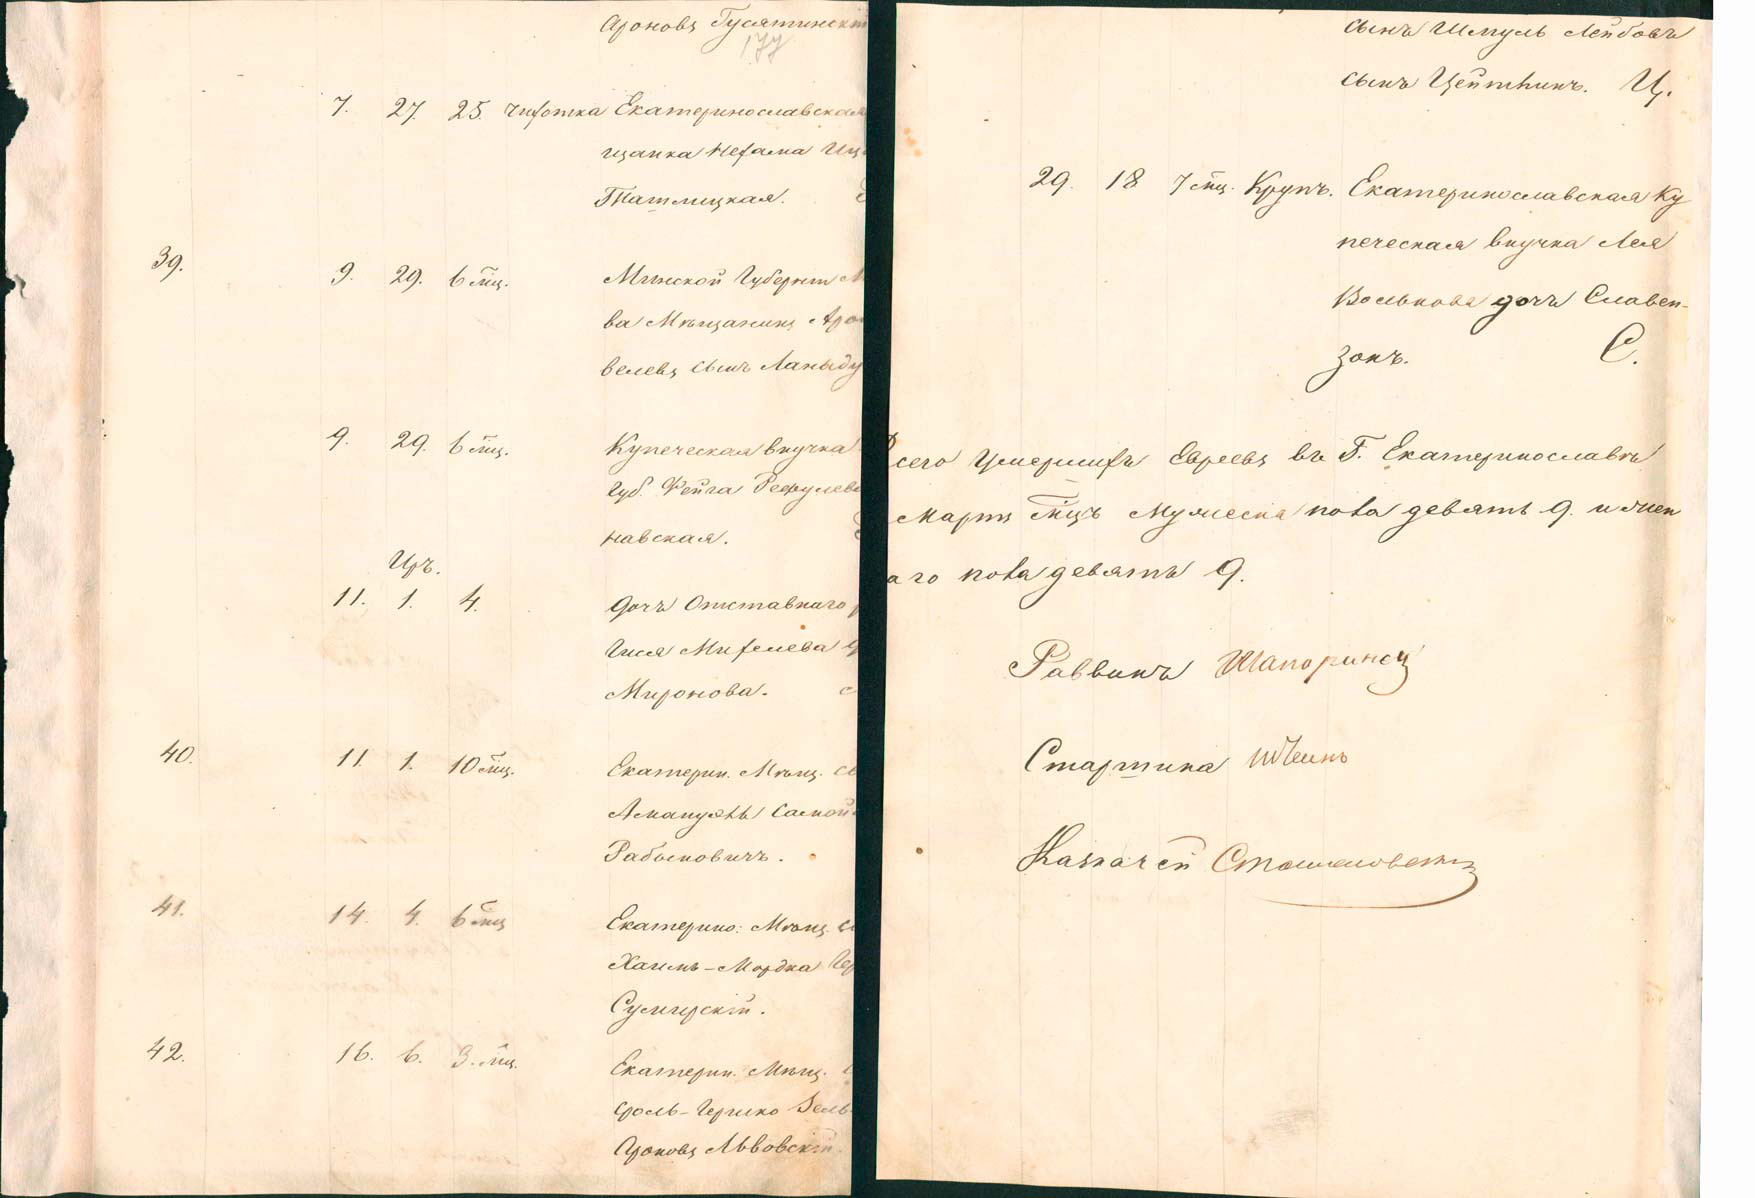 Ароновъ Гусятинскі
177
7. 27. 25. чихотка Екатеринославская
щанка Нехама Иц
Татлицкая.
39.
9. 29. 6 мц. Минской Губерніи
ва Мѣщанинъ Аро
велевъ сынъ
9. 29. 6 мц. Купеческая внучка
Губ. Фейга
навская.
Ир.
11. 1. 4. дочь Отставнаго
Гися Михелева
Миронова.
40.
11. 1. 10 мц. Екатерин. Мѣщ.
Рабиновичъ.
41.
14. 4. 6 мц Екатерино: Мѣщ.
Хаимъ-Мордка Гер
Сумирскій.
42.
16. 6. 3. мц. Екатерин. Мѣщ.
Сроль-Гершко
Ароновъ Львовскій.
сынъ Шмуль Лейбовъ
сынъ Цейтлинъ. Ц.
29. 18 7 мц. Крупъ. Екатеринославская Ку
печеская внучка Лея
Волькова дочь Славен-
зонъ. С.
сего Умершихъ Евреевъ въ Г. Екатеринославѣ
Мартъ мцъ Мужеска пола девять 9. и жен
аго пола девять 9.
Раввинъ Шапоринскі
Старшина Штейнъ
Казначей